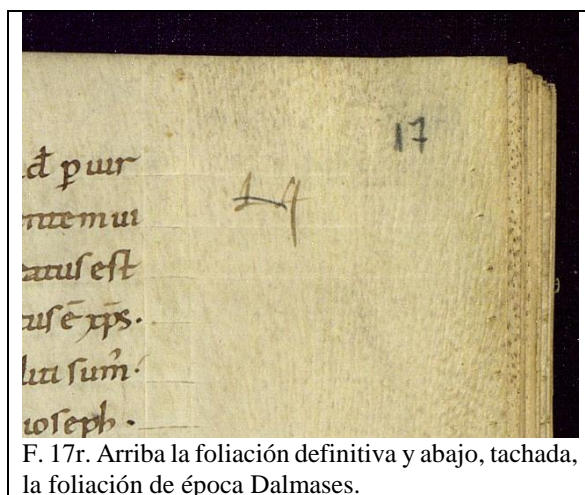 17
đ ꝑ uir
ntem ui
tatus est
tus ē xp̄s.
liti sum̄.
ioseph .
F. 17r. Arriba la foliación definitiva y abajo, tachada,
la foliación de época Dalmases.